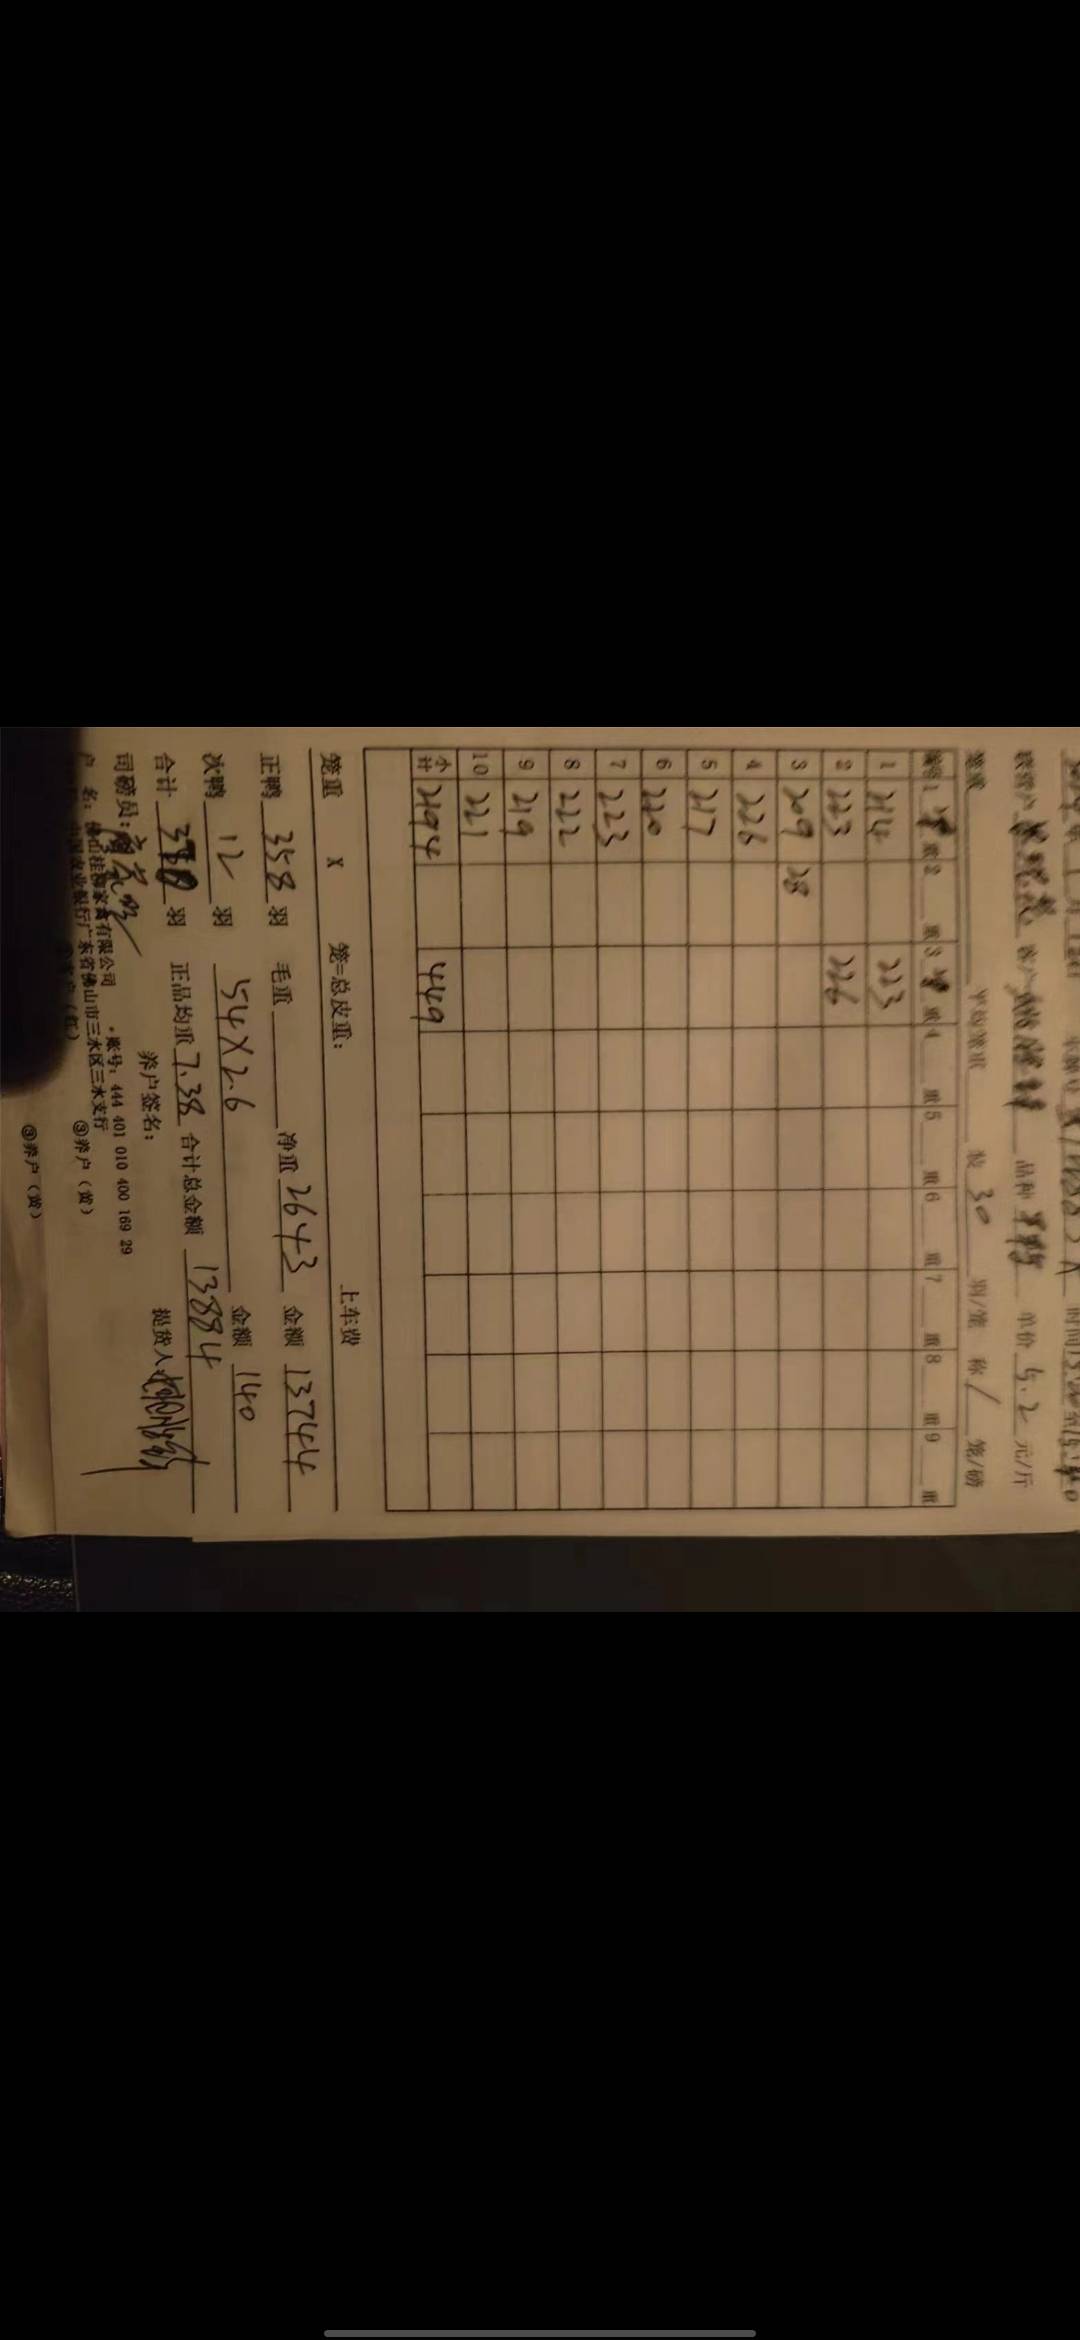 月
时间
联营户 客户 品种 单价 5.2 元/斤
笼重 平均笼重 装 30 羽/笼 称 / 笼/磅
编号 1 重 2 重 3 重 4 重 5 重 6 重 7 重 8 重 9 重
1 214 223
2 223 226
3 209 28
4 226
5 217
6 220
7 223
8 222
9 219
10 221
个计 2194 449
笼重 X 笼=总皮重: 上车费
正鸭 358 羽 毛重 净重 2643 金额 13744
次鸭 12 羽 54X2.6 金额 140
合计 羽 正品均重 7.38 合计总金额 13884
司磅员: 养户签名: 提货人
户 名: 佛山桂柳家禽有限公司 账号: 444 401 010 400 169 29
中国农业银行广东省佛山市三水区三水支行 ③养户(黄)
③养户(黄)